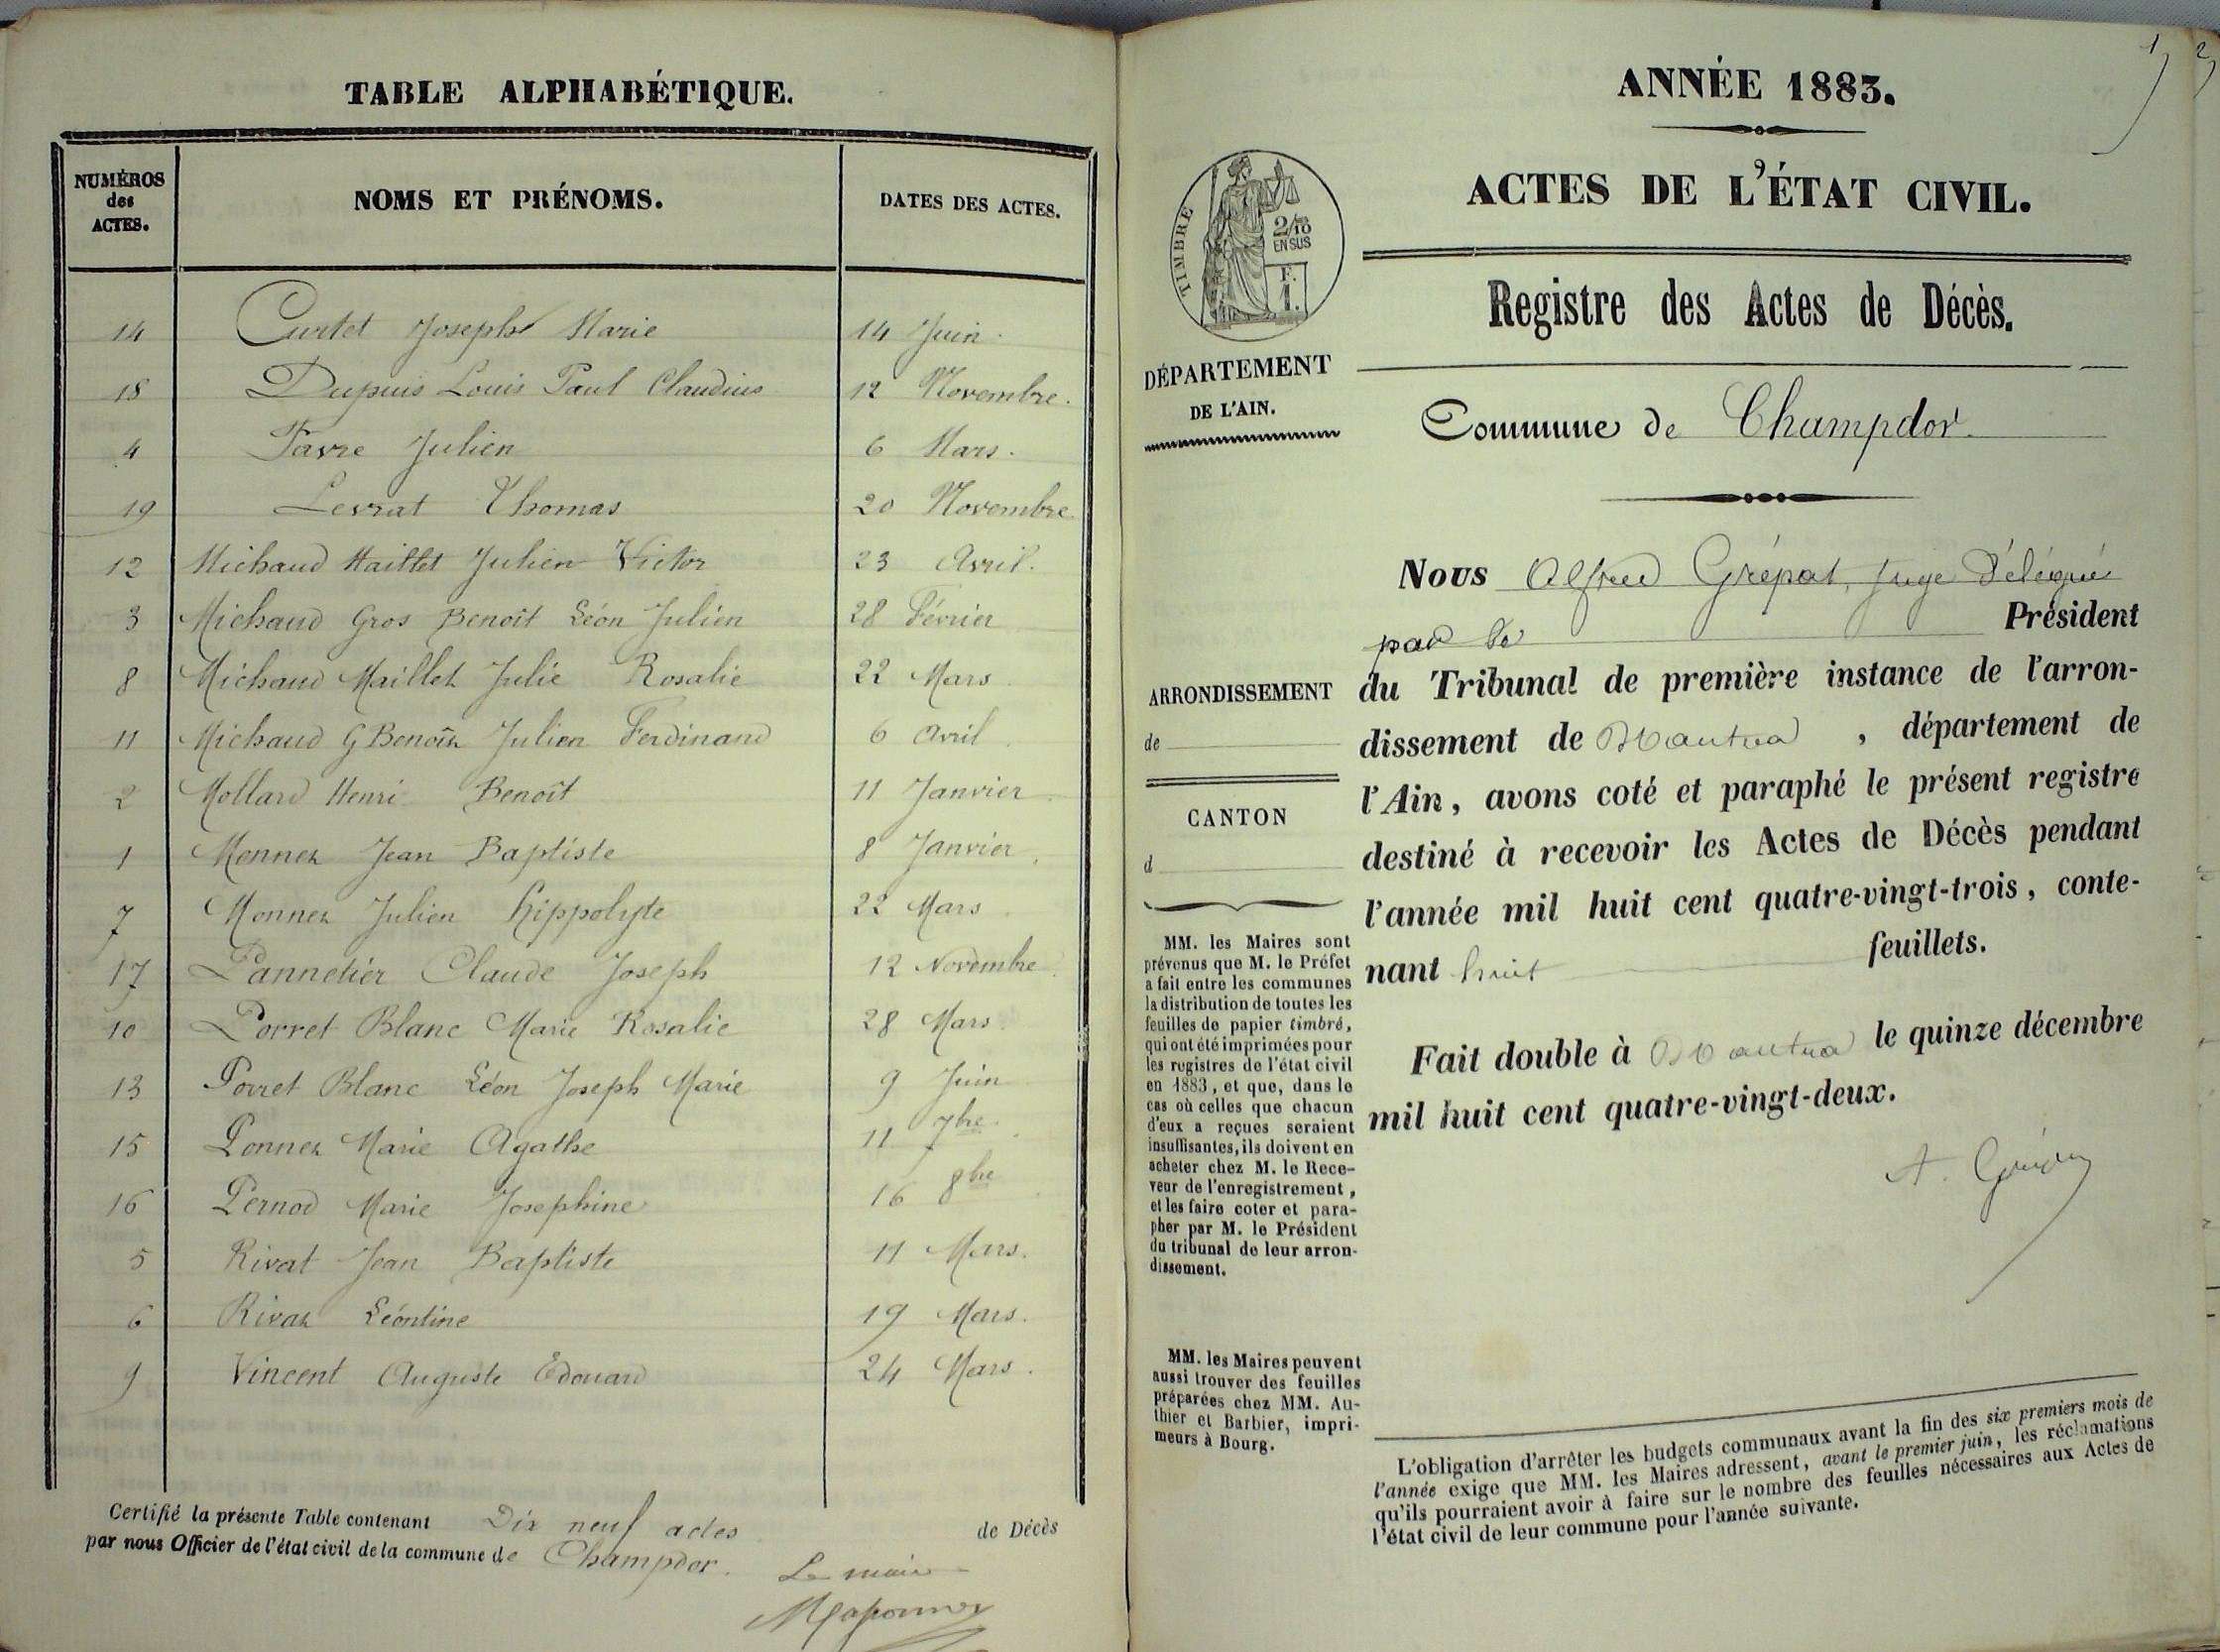 TABLE ALPHABÉTIQUE.
NUMÉROS des ACTES. NOMS ET PRÉNOMS. DATES DES ACTES.
14 Curtet Joseph Marie 14 Juin.
18 Dupuis Louis Paul Claudius 12 Novembre.
4 Favre Julien 6 Mars.
19 Levrat Thomas 20 Novembre
12 Michaud Maillet Julien Victor 23 Avril.
3 Michaud Gros Benoît Léon Julien 28 Février
8 Michaud Maillet Julie Rosalie 22 Mars
11 Michaud G Benoît Julien Ferdinand 6 Avril
2 Mollard Henri Benoît 11 Janvier
1 Monnet Jean Baptiste 8 Janvier
7 Monnet Julien hippolyte 22 Mars
17 Pannetier Claude Joseph 12 Novembre
10 Porret Blanc Marie Rosalie 28 Mars
13 Porret Blanc Léon Joseph Marie 9 Juin
15 Ponnet Marie Agathe 11 7bre
16 Pernod Marie Josephine 16 8bre
5 Rivat Jean Baptiste 11 Mars.
6 Rivat Léontine 19 Mars.
9 Vincent Auguste Edouard 24 Mars.
Certifié la présente Table contenant Dix neuf actes de Décès
par nous Officier de l'état civil de la commune de Champdor.
Le maire
1 2
ANNÉE 1883.
ACTES DE L'ÉTAT CIVIL.
TIMBRE
2/10
EN SUS
F.
1.
Registre des Actes de Décès.
DÉPARTEMENT
DE L'AIN.
Commune de Champdor
Nous Alfred Grépat, Juge Délégué
par le Président
ARRONDISSEMENT
de
CANTON
d
du Tribunal de première instance de l'arron-
dissement de Nantua, département de
l'Ain, avons coté et paraphé le présent registre
destiné à recevoir les Actes de Décès pendant
l'année mil huit cent quatre-vingt-trois, conte-
nant huit feuillets.
Fait double à Nantua le quinze décembre
mil huit cent quatre-vingt-deux.
MM. les Maires sont
prévenus que M. le Préfet
a fait entre les communes
la distribution de toutes les
feuilles de papier timbré,
qui ont été imprimées pour
les registres de l'état civil
en 1883, et que, dans le
cas où celles que chacun
d'eux a reçues seraient
insuffisantes, ils doivent en
acheter chez M. le Rece-
veur de l'enregistrement,
et les faire coter et para-
pher par M. le Président
du tribunal de leur arron-
dissement.
MM. les Maires peuvent
aussi trouver des feuilles
préparées chez MM. Au-
thier et Barbier, impri-
meurs à Bourg.
L'obligation d'arrêter les budgets communaux avant la fin des six premiers mois de
l'année exige que MM. les Maires adressent, avant le premier juin, les réclamations
qu'ils pourraient avoir à faire sur le nombre des feuilles nécessaires aux Actes de
l'état civil de leur commune pour l'année suivante.